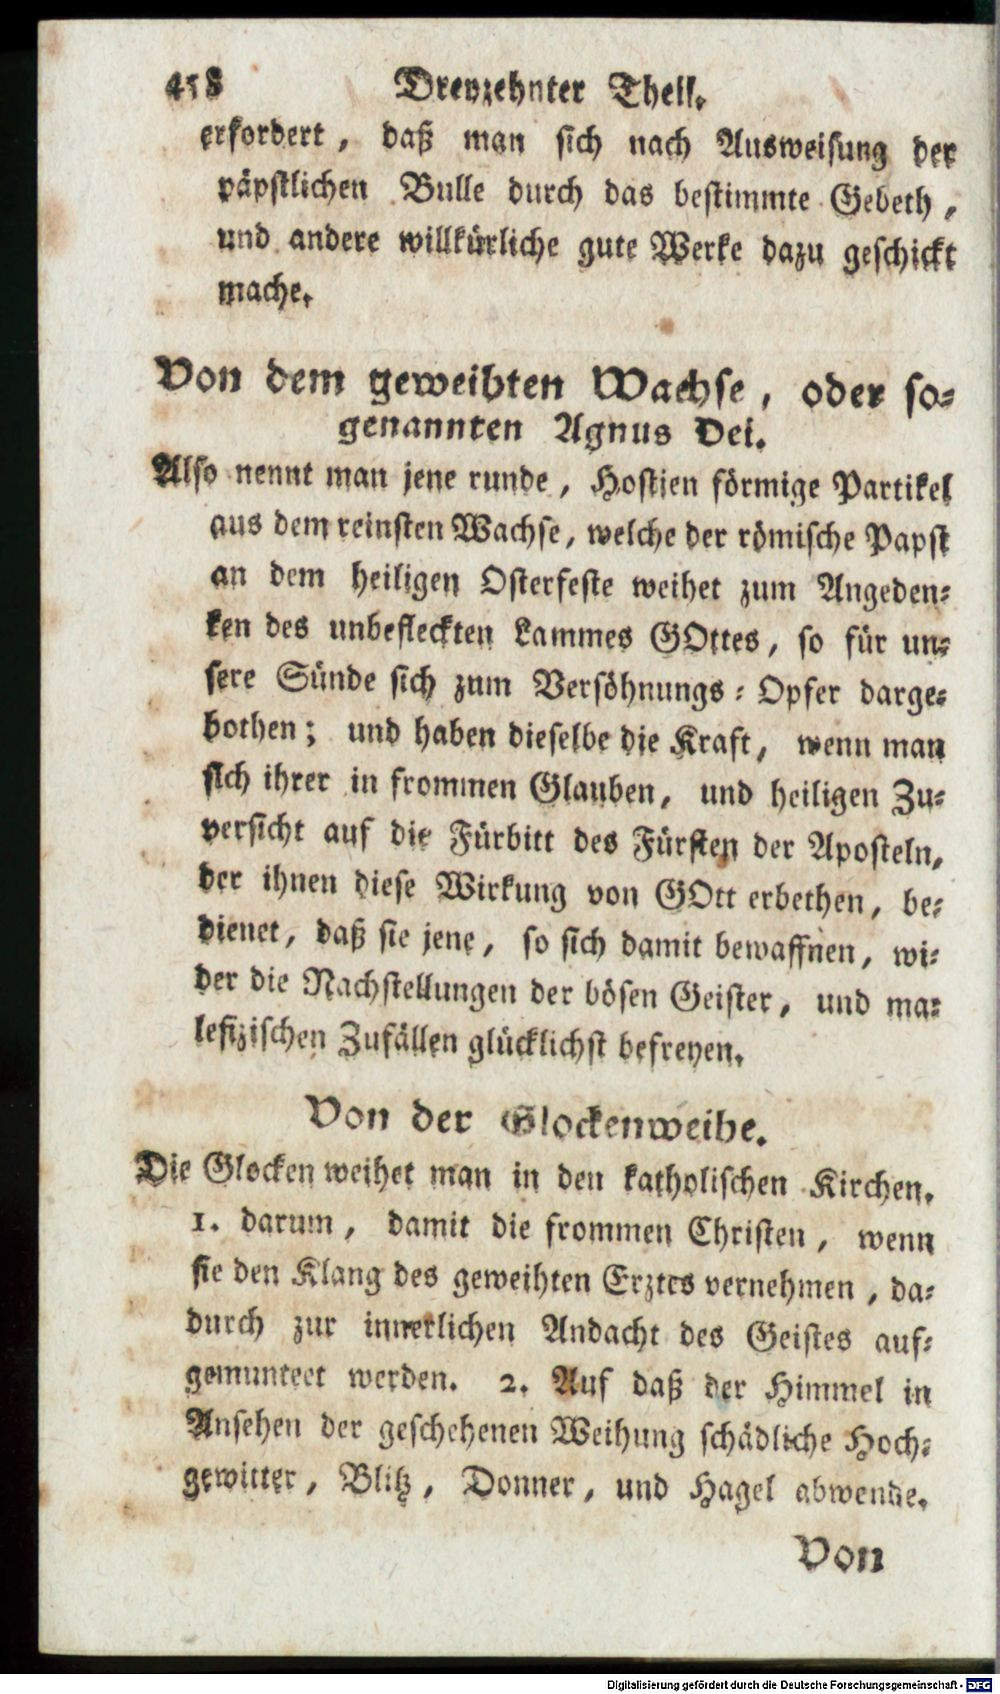 458 Dreyzehnter Theil.
erfordert, daß man sich nach Ausweisung der
päpstlichen Bulle durch das bestimmte Gebeth,
und andere willkürliche gute Werke dazu geschickt
mache.
Von dem geweihten Wachse, oder so-
genannten Agnus Dei.
Also nennt man jene runde, Hostien förmige Partikel
aus dem reinsten Wachse, welche der römische Papst
an dem heiligen Osterfeste weihet zum Angeden-
ken des unbefleckten Lammes GOttes, so für un-
sere Sünde sich zum Versöhnungs-Opfer darge-
bothen; und haben dieselbe die Kraft, wenn man
sich ihrer in frommen Glauben, und heiligen Zu-
versicht auf die Fürbitt des Fürsten der Aposteln,
der ihnen diese Wirkung von GOtt erbethen, be-
dienet, daß sie jene, so sich damit bewaffnen, wi-
der die Nachstellungen der bösen Geister, und ma-
lefizischen Zufällen glücklichst befreyen.
Von der Glockenweihe.
Die Glocken weihet man in den katholischen Kirchen.
1. darum, damit die frommen Christen, wenn
sie den Klang des geweihten Erztes vernehmen, da-
durch zur innerlichen Andacht des Geistes auf-
gemuntert werden. 2. Auf daß der Himmel in
Ansehen der geschehenen Weihung schädliche Hoch-
gewitter, Blitz, Donner, und Hagel abwende.
Von
Digitalisierung gefördert durch die Deutsche Forschungsgemeinschaft - DFG